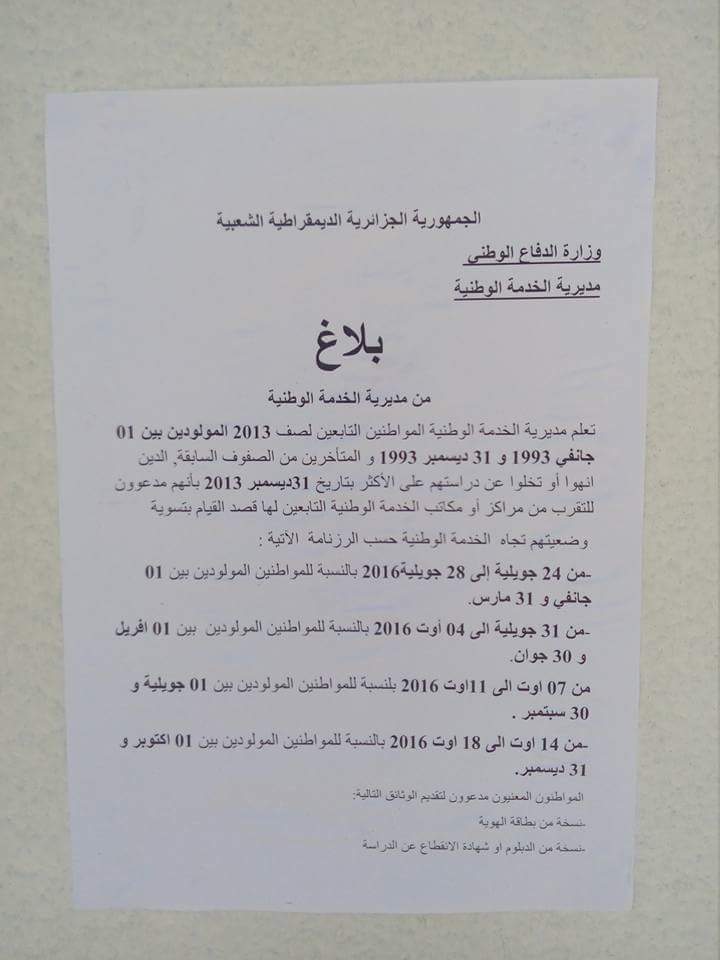 الجمهورية الجزائرية الديمقراطية الشعبية
وزارة الدفاع الوطني
مديرية الخدمة الوطنية
بلاغ
من مديرية الخدمة الوطنية
تعلم مديرية الخدمة الوطنية المواطنين التابعين لصف 2013 المولودين بين 01
جانفي 1993 و 31 ديسمبر 1993 و المتأخرين من الصفوف السابقة, الدين
انهوا أو تخلوا عن دراستهم على الأكثر بتاريخ 31ديسمبر 2013 بأنهم مدعوون
للتقرب من مراكز أو مكاتب الخدمة الوطنية التابعين لها قصد القيام بتسوية
وضعيتهم تجاه الخدمة الوطنية حسب الرزنامة الآتية :
-من 24 جويلية إلى 28 جويلية2016 بالنسبة للمواطنين المولودين بين 01
جانفي و 31 مارس.
-من 31 جويلية الى 04 أوت 2016 بالنسبة للمواطنين المولودين بين 01 افريل
و 30 جوان.
من 07 اوت الى 11اوت 2016 بلنسبة للمواطنين المولودين بين 01 جويلية و
30 سبتمبر .
-من 14 اوت الى 18 اوت 2016 بالنسبة للمواطنين المولودين بين 01 اكتوبر و
31 ديسمبر.
المواطنون المعنيون مدعوون لتقديم الوثائق التالية:
-نسخة من بطاقة الهوية
-نسخة من الدبلوم او شهادة الانقطاع عن الدراسة